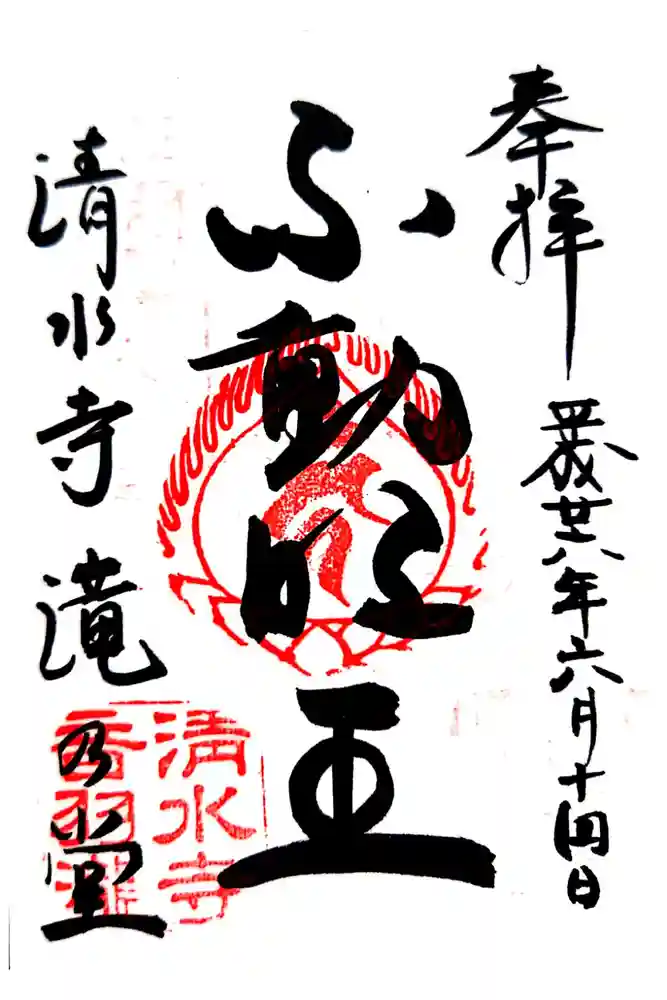 奉拝
平成廿八年六月十四日
不動明王
清水寺 滝乃堂
清水寺
音羽瀧